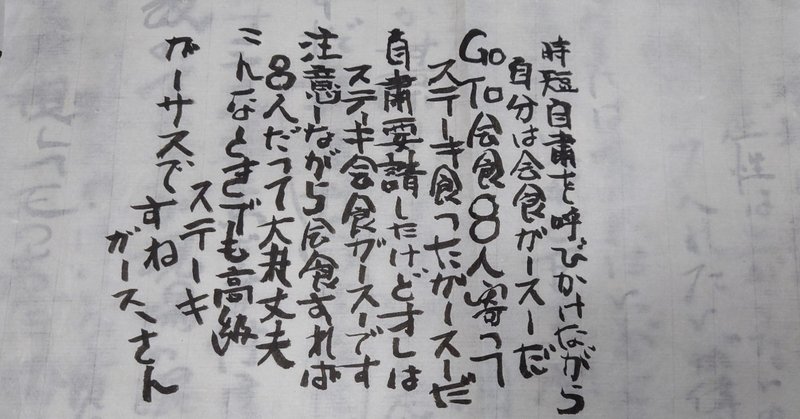 時短自粛を呼びかけながら
自分は会食がースーだ
GoTo会食8人寄って
ステーキ食ったがースーだ
自粛要請したけどオレは
ステーキ会食がースーです
注意しながら会食すれば
8人だって大丈夫
こんなときでも高級
ステーキ
がーサスですね
ガースーさん